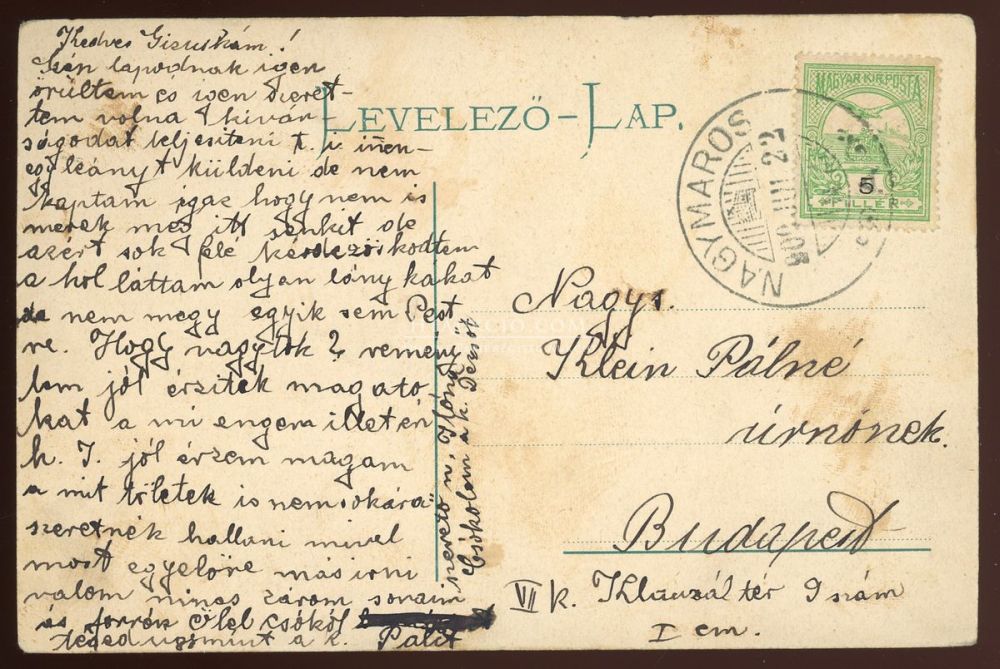 Kedves Giziskám!
lapodnak igen
örültem és igen szeret-
tem volna kiván-
ságodat teljesiteni t. i. innen
egy leányt küldeni de nem
kaptam igaz hogy nem is
merek meg itt senkit de
azért sok felé kérdezősködtem
a hol láttam olyan lány kákat
de nem megy egyik sem Pest
re. Hogy vagytok? remény
lem jól érzitek magato
kat a mi engem illet én
h. I. jól érzem magam
a mit tőletek is nemsokára
szeretnék hallani mivel
most egyelőre más irni
valóm nincs zárom soraim
és forrón ölel csókól
téged ugymint a k. Palit
szerető n. Ilona
Csókolom a k. Dezsőt
LEVELEZŐ-LAP.
MAGYAR KIR. POSTA
5
FILLÉR
NAGYMAROS
Nagys.
Klein Pálné
úrnőnek.
Budapest
VII k. Klauzál tér 9 szám
I em.